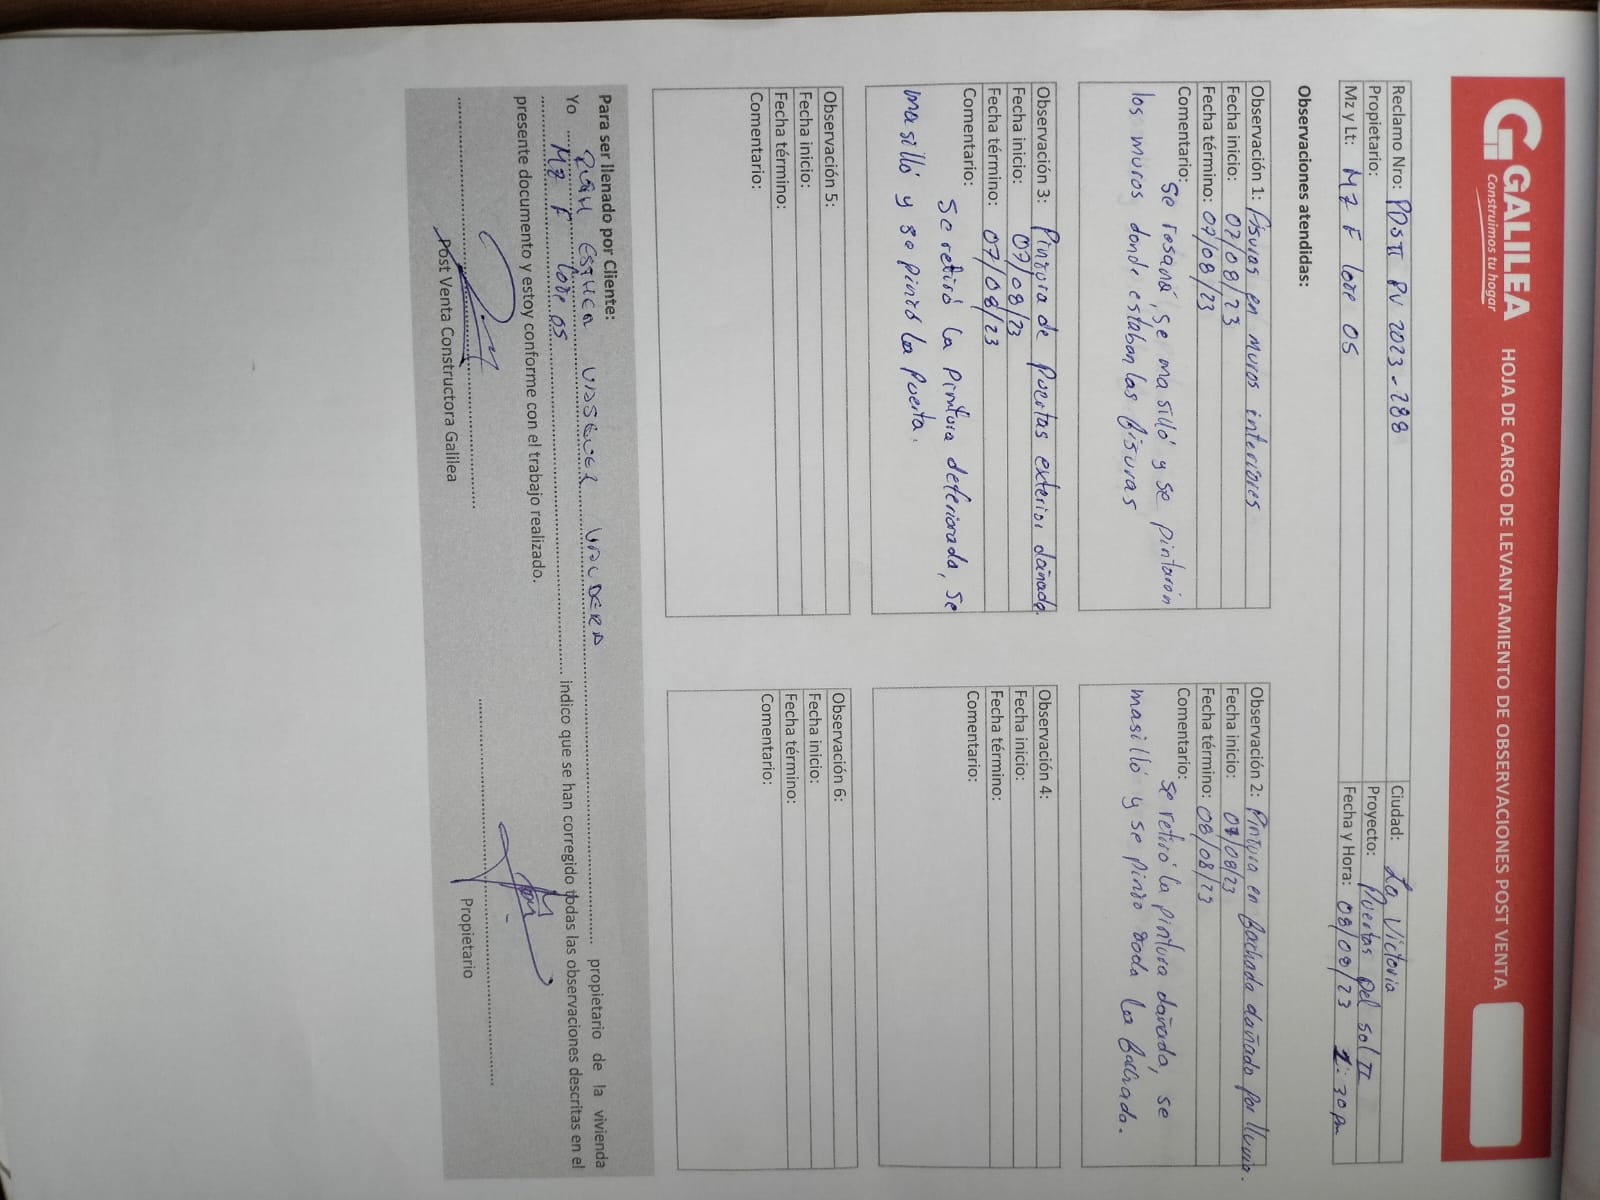 GALILEA
Construimos tu hogar
HOJA DE CARGO DE LEVANTAMIENTO DE OBSERVACIONES POST VENTA
Reclamo Nro: PDSII PV 2023-288
Ciudad: La Victoria
Propietario:
Proyecto: Puertas del sol II
Mz y Lt: MZ F lote 05
Fecha y Hora: 08/08/23 1:30pm
Observaciones atendidas:
Observación 1: Fisuras en muros interiores
Fecha inicio: 07/08/23
Fecha término: 07/08/23
Comentario: Se resanó, se masilló y se pintarón
los muros donde estaban las fisuras
Observación 2: Pintura en fachada dañado por lluvia.
Fecha inicio: 07/08/23
Fecha término: 08/08/23
Comentario: Se retiró la pintura dañada, se
masilló y se pintó toda la fachada.
Observación 3: Pintura de puertas exterior dañada.
Fecha inicio: 07/08/23
Fecha término: 07/08/23
Comentario: Se retiró la pintura deteriorada, se
masilló y se pintó la puerta.
Observación 4:
Fecha inicio:
Fecha término:
Comentario:
Observación 5:
Fecha inicio:
Fecha término:
Comentario:
Observación 6:
Fecha inicio:
Fecha término:
Comentario:
Para ser llenado por Cliente:
Yo ESTHER VASQUEZ propietario de la vivienda
MZ F lote 05 indico que se han corregido todas las observaciones descritas en el
presente documento y estoy conforme con el trabajo realizado.
Post Venta Constructora Galilea
Propietario